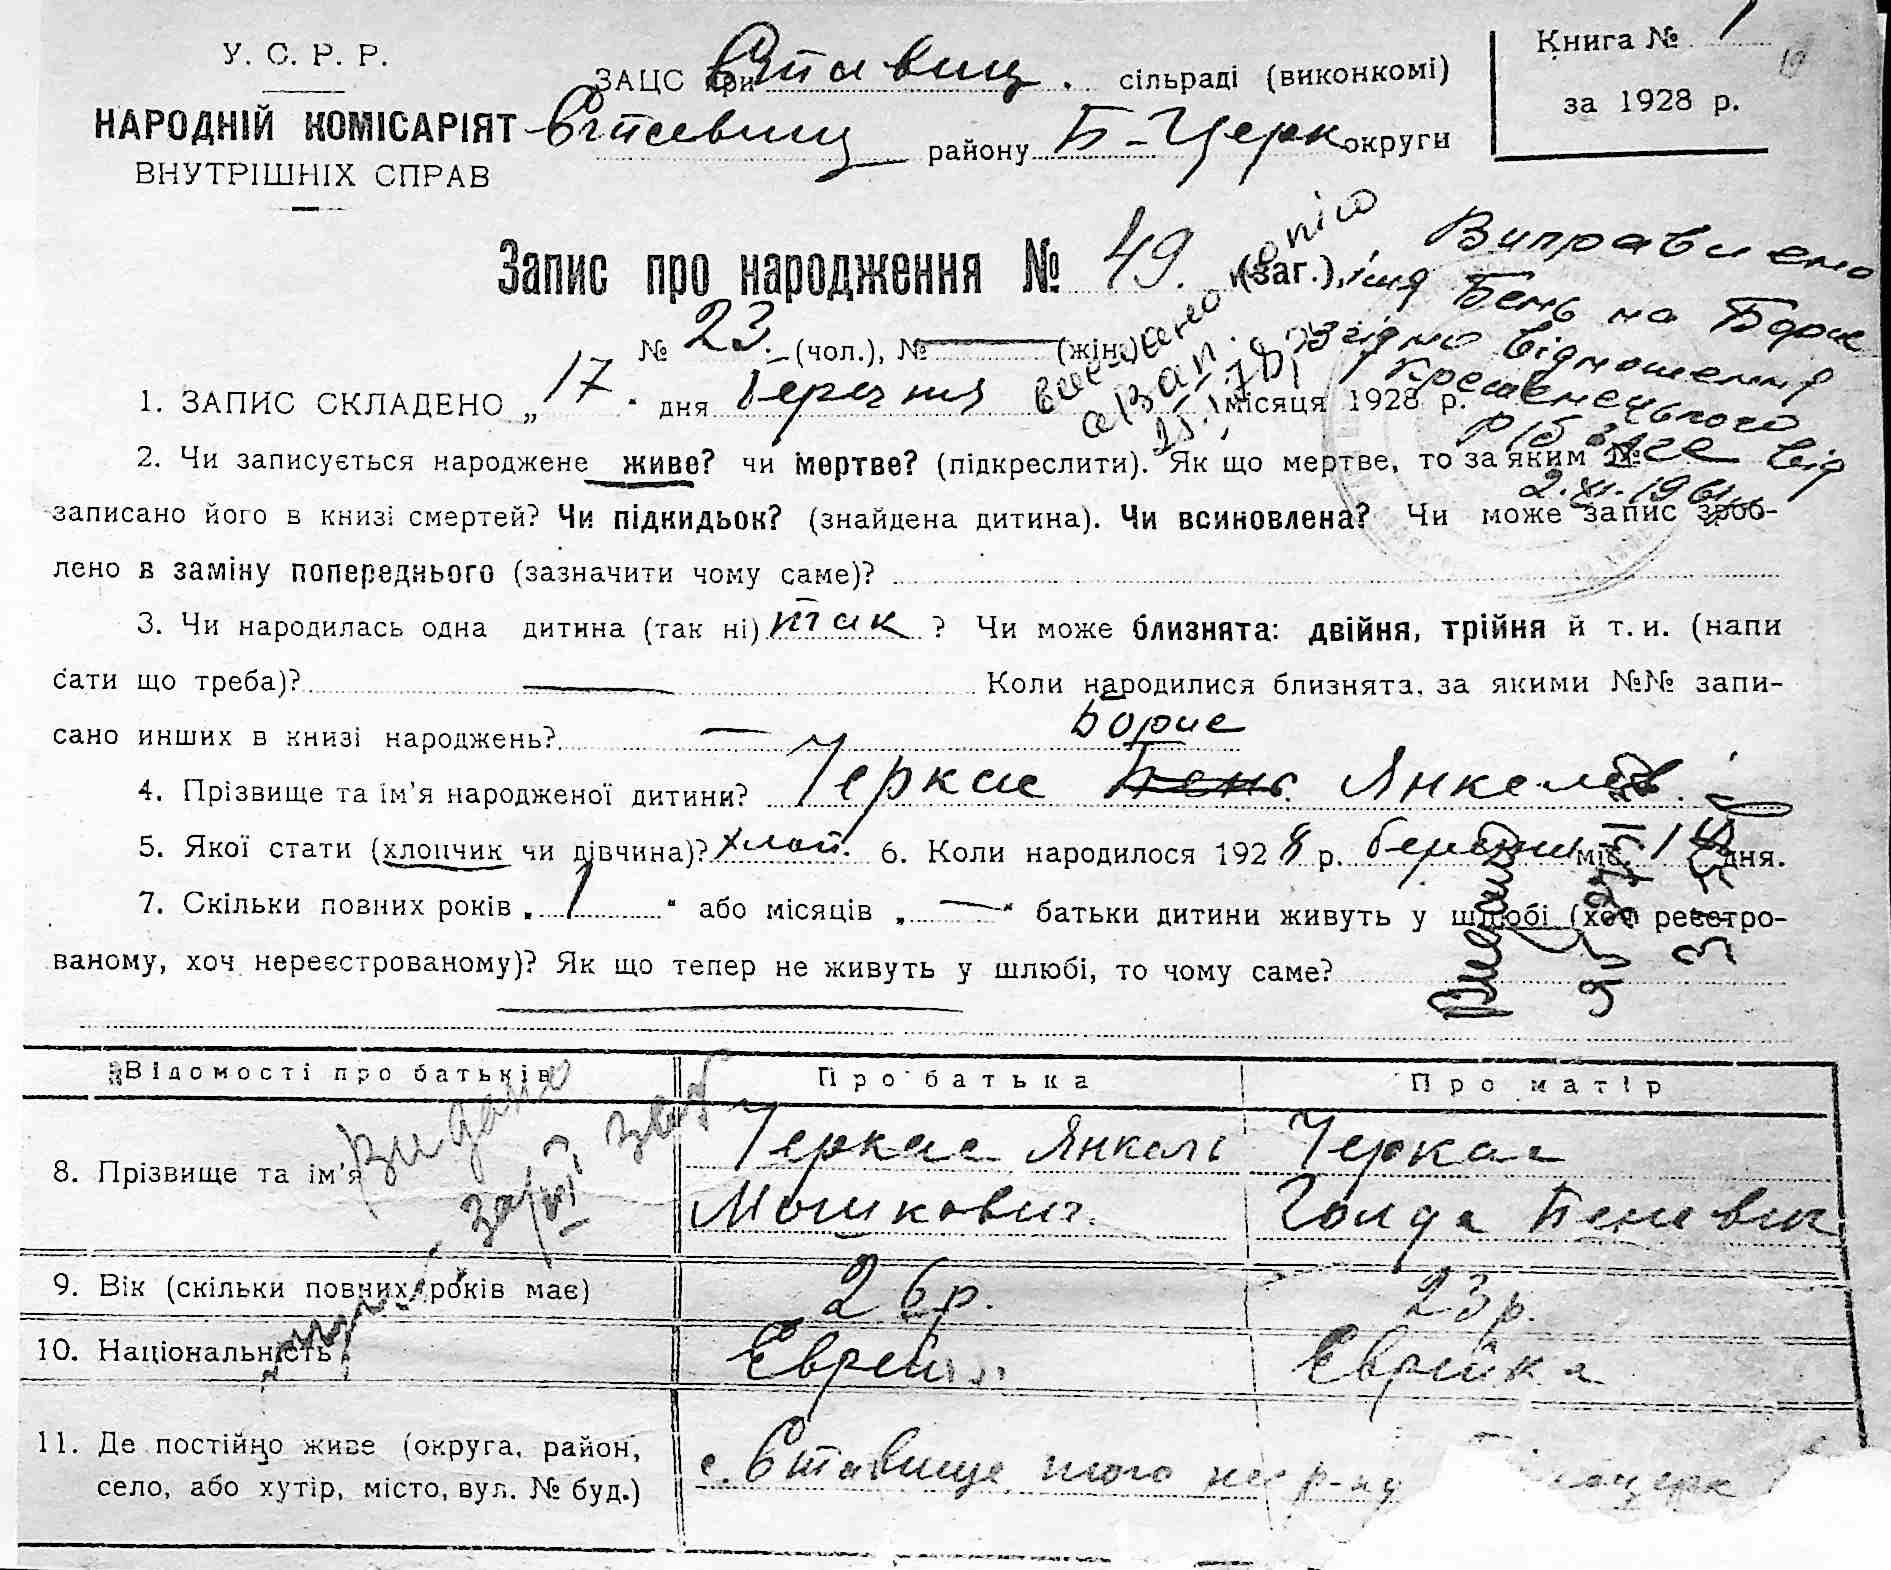 У. С. Р. Р.
НАРОДНІЙ КОМІСАРІЯТ
ВНУТРІШНІХ СПРАВ
ЗАЦС при Ставищ. сільраді (виконкомі)
Ставищ району Б-Церк округи
Книга № 1
за 1928 р.
Запис про народження № 49. (заг.),
№ 23. (чол.), № (жін.)
Виправлено
імя Бень на Борис
згідно відношення
Кременецького
р/б ЗАГС від
2.XI.1961
копію
1. ЗАПИС СКЛАДЕНО „17" дня березня місяця 1928 р.
2. Чи записується народжене живе? чи мертве? (підкреслити). Як що мертве, то за яким №
записано його в книзі смертей? Чи підкидьок? (знайдена дитина). Чи всиновлена? Чи може запис зроб-
лено в заміну попереднього (зазначити чому саме)?
3. Чи народилась одна дитина (так ні) так ? Чи може близнята: двійня, трійня й т. и. (напи
сати що треба)? Коли народилися близнята, за якими №№ запи-
сано инших в книзі народжень?
Борис
4. Прізвище та ім'я народженої дитини? Черкас Бень Янкелев.
5. Якої стати (хлопчик чи дівчина)? хлоп. 6. Коли народилося 1928 р. березня міс. дня.
7. Скільки повних років „1" або місяців „—" батьки дитини живуть у шлюбі (хоч реєстро-
ваному, хоч нереєстрованому)? Як що тепер не живуть у шлюбі, то чому саме?
Відомості про батьків Про батька Про матір
видано
8. Прізвище та ім'я Черкас Янкель Черкас
Мошкович. Голда Беневич
9. Вік (скільки повних років має) 26 р. 23 р.
10. Національність Еврей Еврейка
11. Де постійно живе (округа, район,
село, або хутір, місто, вул. № буд.) с. Ставище, того же р-ну